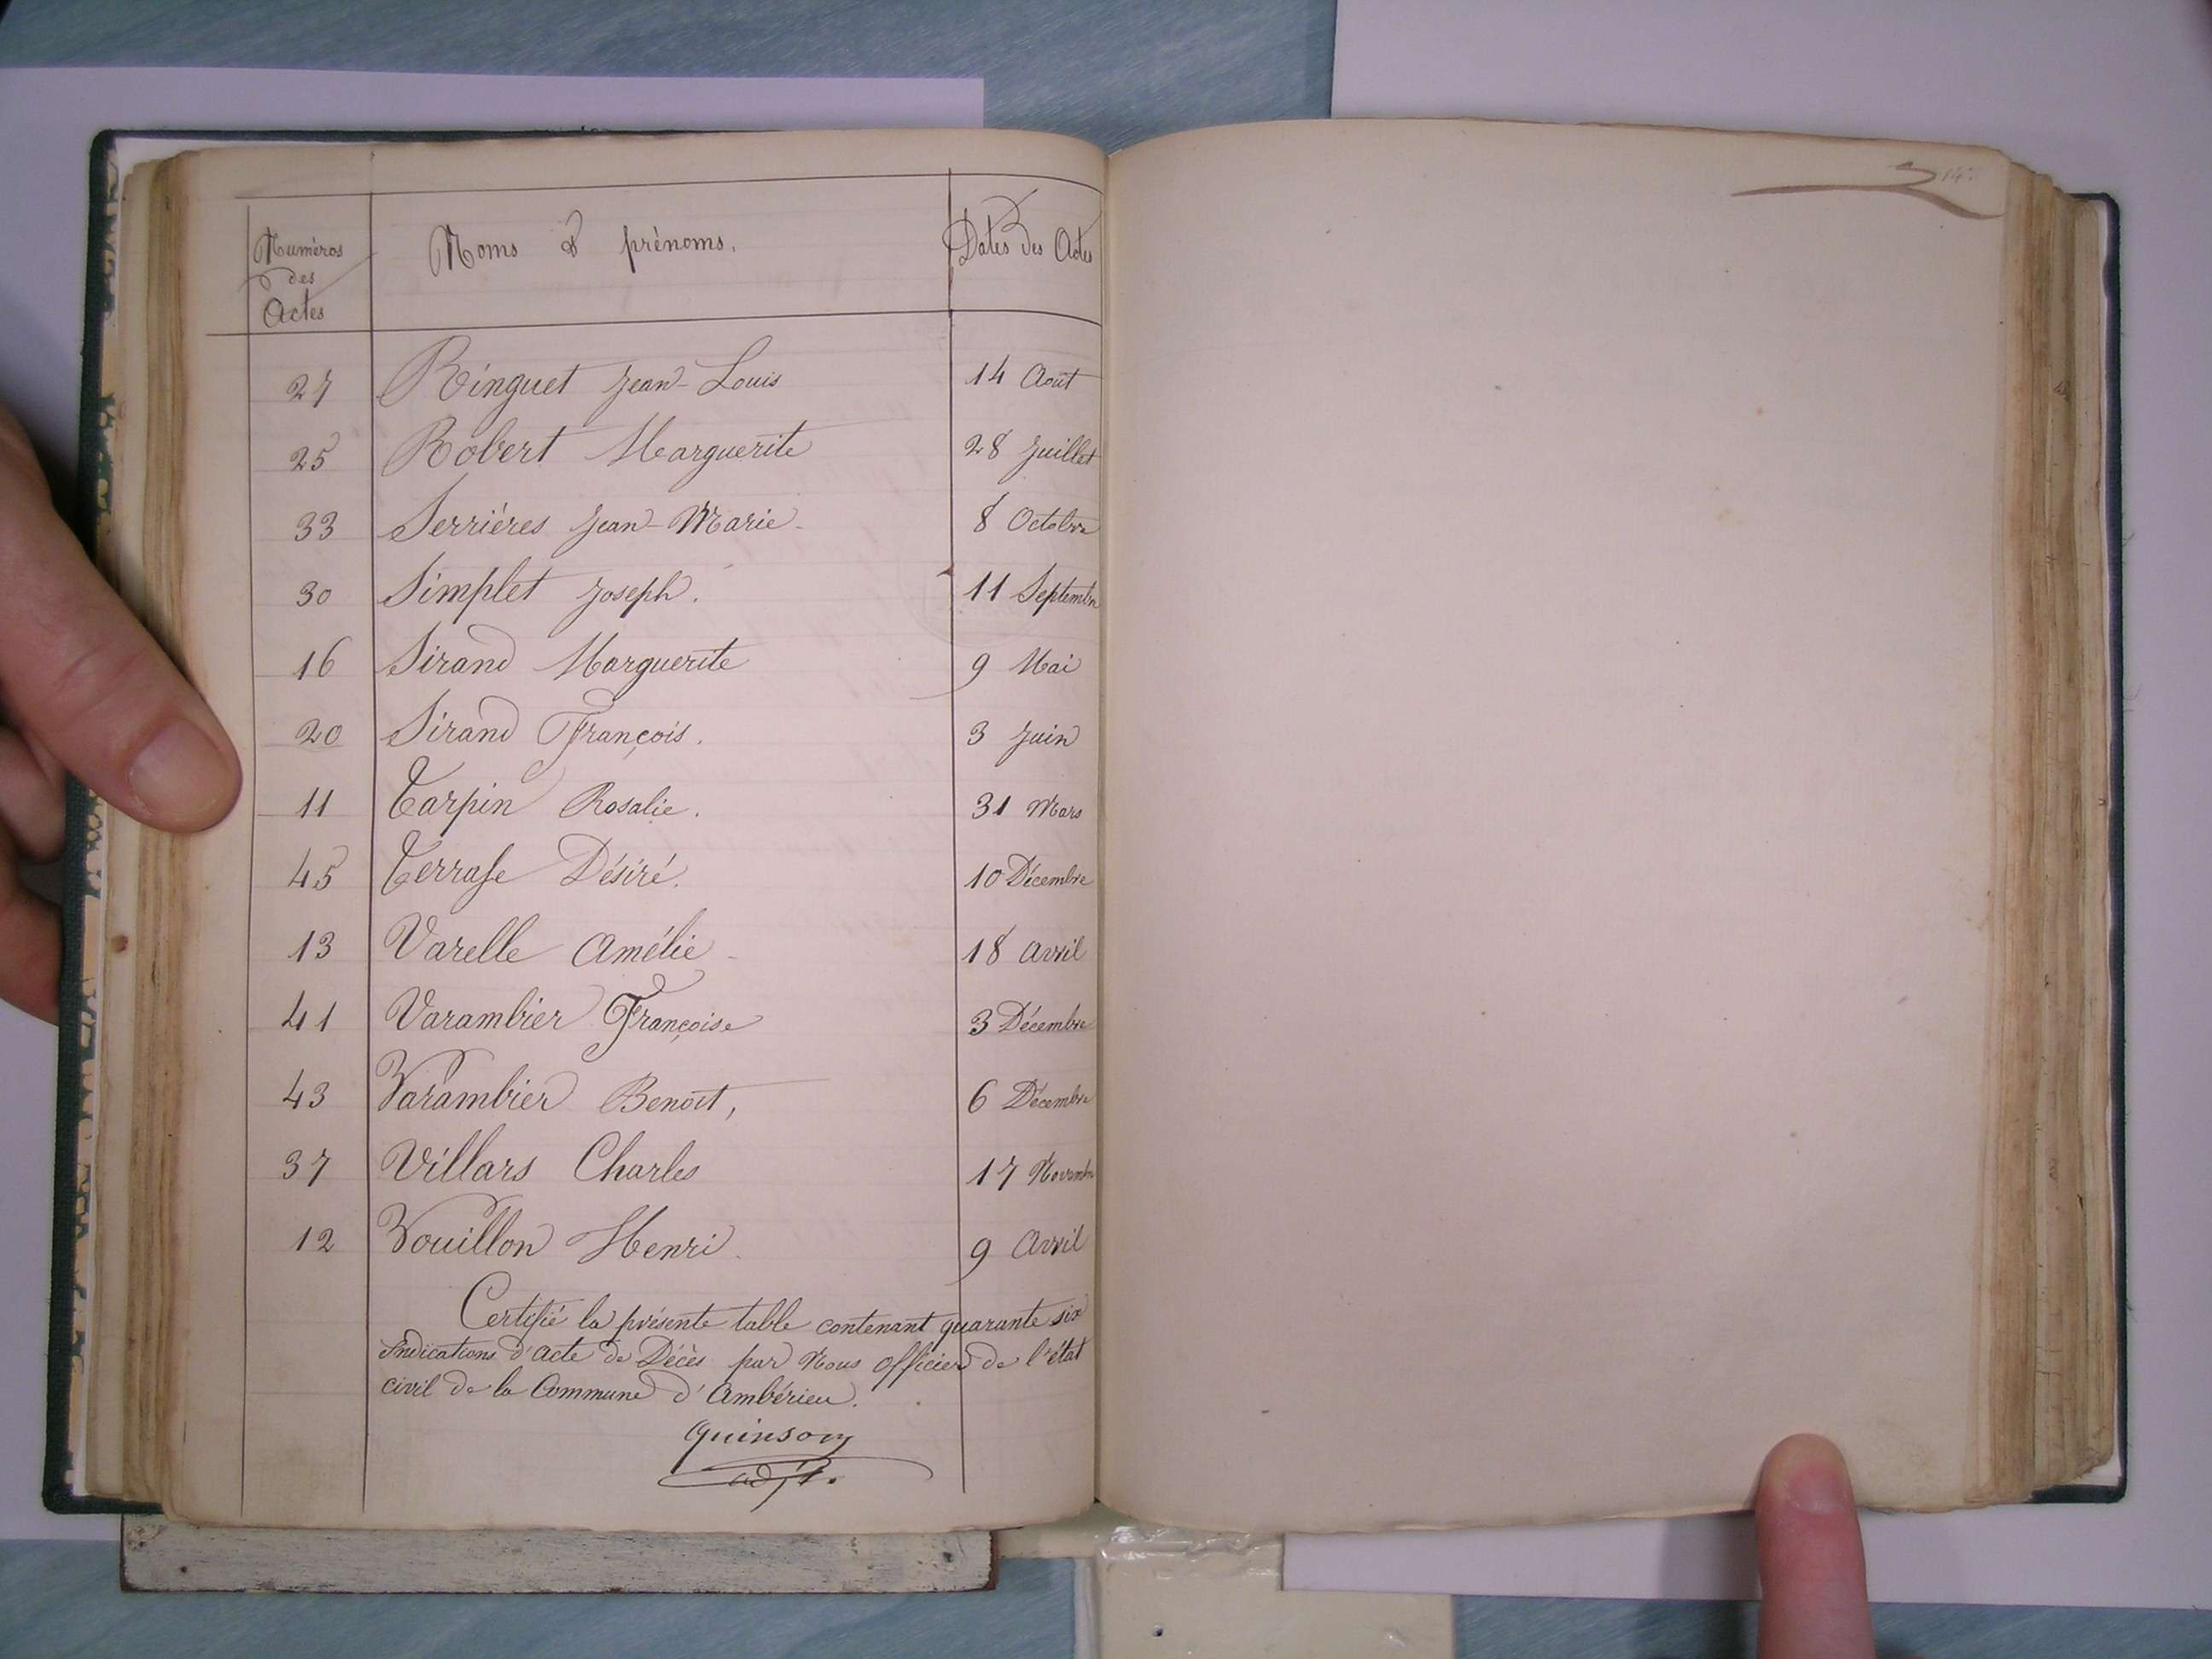 Numéros des Actes
Noms & prénoms.
Dates des Actes
27 Ringuet Jean-Louis 14 Août
25 Robert Marguerite 28 Juillet
33 Serrières Jean-Marie 8 Octobre
30 Simplet Joseph. 11 Septembre
16 Sirand Marguerite 9 Mai
20 Sirand François. 3 Juin
11 Tarpin Rosalie. 31 Mars
45 Terrasse Désiré. 10 Décembre
13 Varelle Amélie 18 Avril
41 Varambier Françoise 3 Décembre
43 Varambier Benoît, 6 Décembre
37 Villars Charles 17 Novembre
12 Vouillon Henri 9 Avril
Certifié la présente table contenant quarante six
Indications d'acte de Décès par Nous officier de l'état
civil de la Commune d'Ambérieu.
Quinson
adjt.